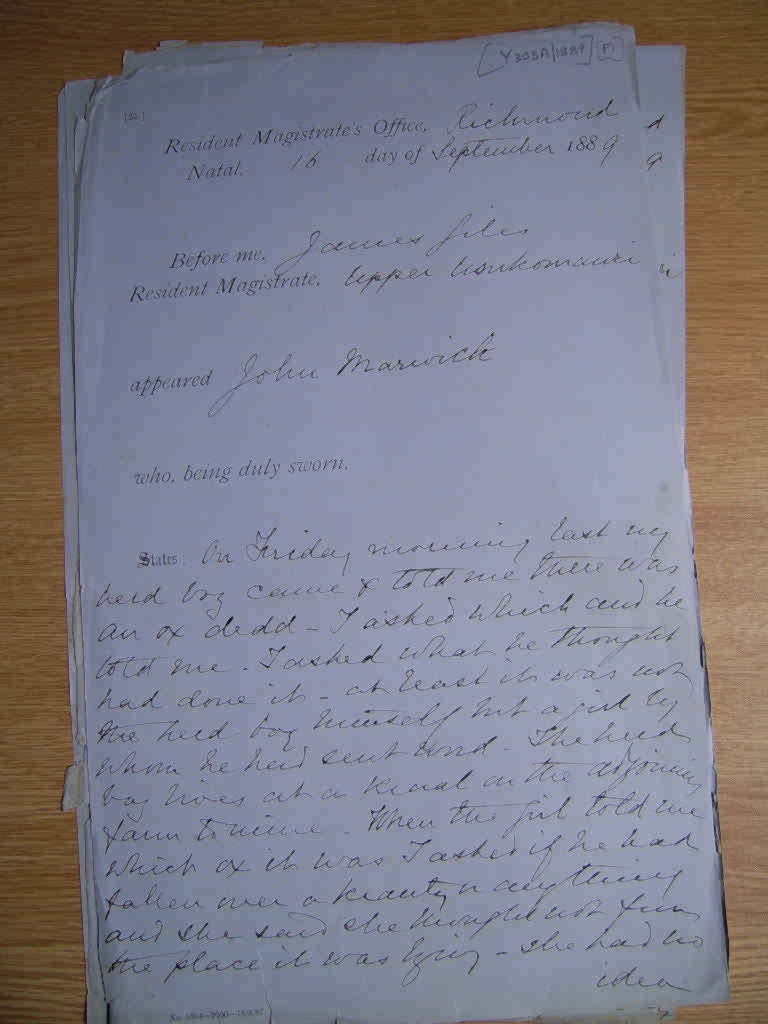 [Y303A/1889] (F)
[22.]
Resident Magistrate's Office, Richmond
Natal, 16 day of September 1889
Before me, James Giles
Resident Magistrate, Upper Umkomanzi
appeared John Marwick
who, being duly sworn,
States: On Friday morning last my
herd boy came & told me there was
an ox dead - I asked which and he
told me - I asked what he thought
had done it - at least it was not
the herd-boy himself but a girl by
whom he had sent word - The herd
boy lives at a kraal on the adjoining
farm to mine - When the girl told me
which ox it was I asked if he had
fallen over a krantz or anything
and she said she thought not from
the place it was lying - she had no
idea